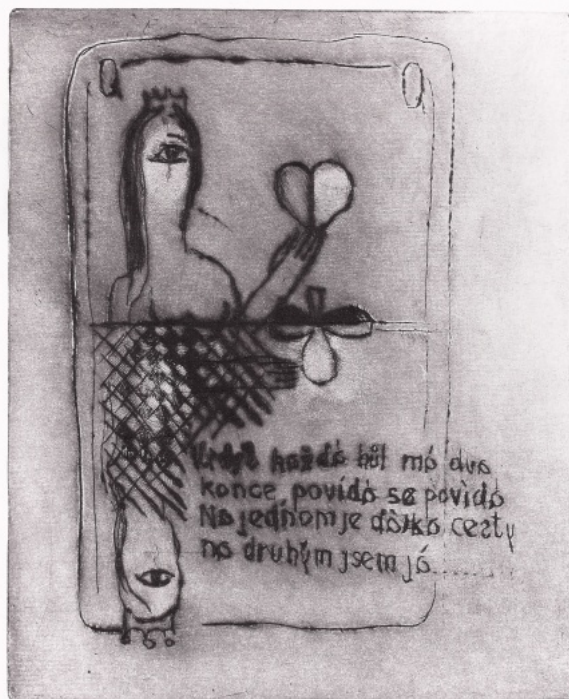 Vždyť každá hůl má dva
konce, povídá se povídá
Na jednom je dálka cesty
na druhým jsem já........